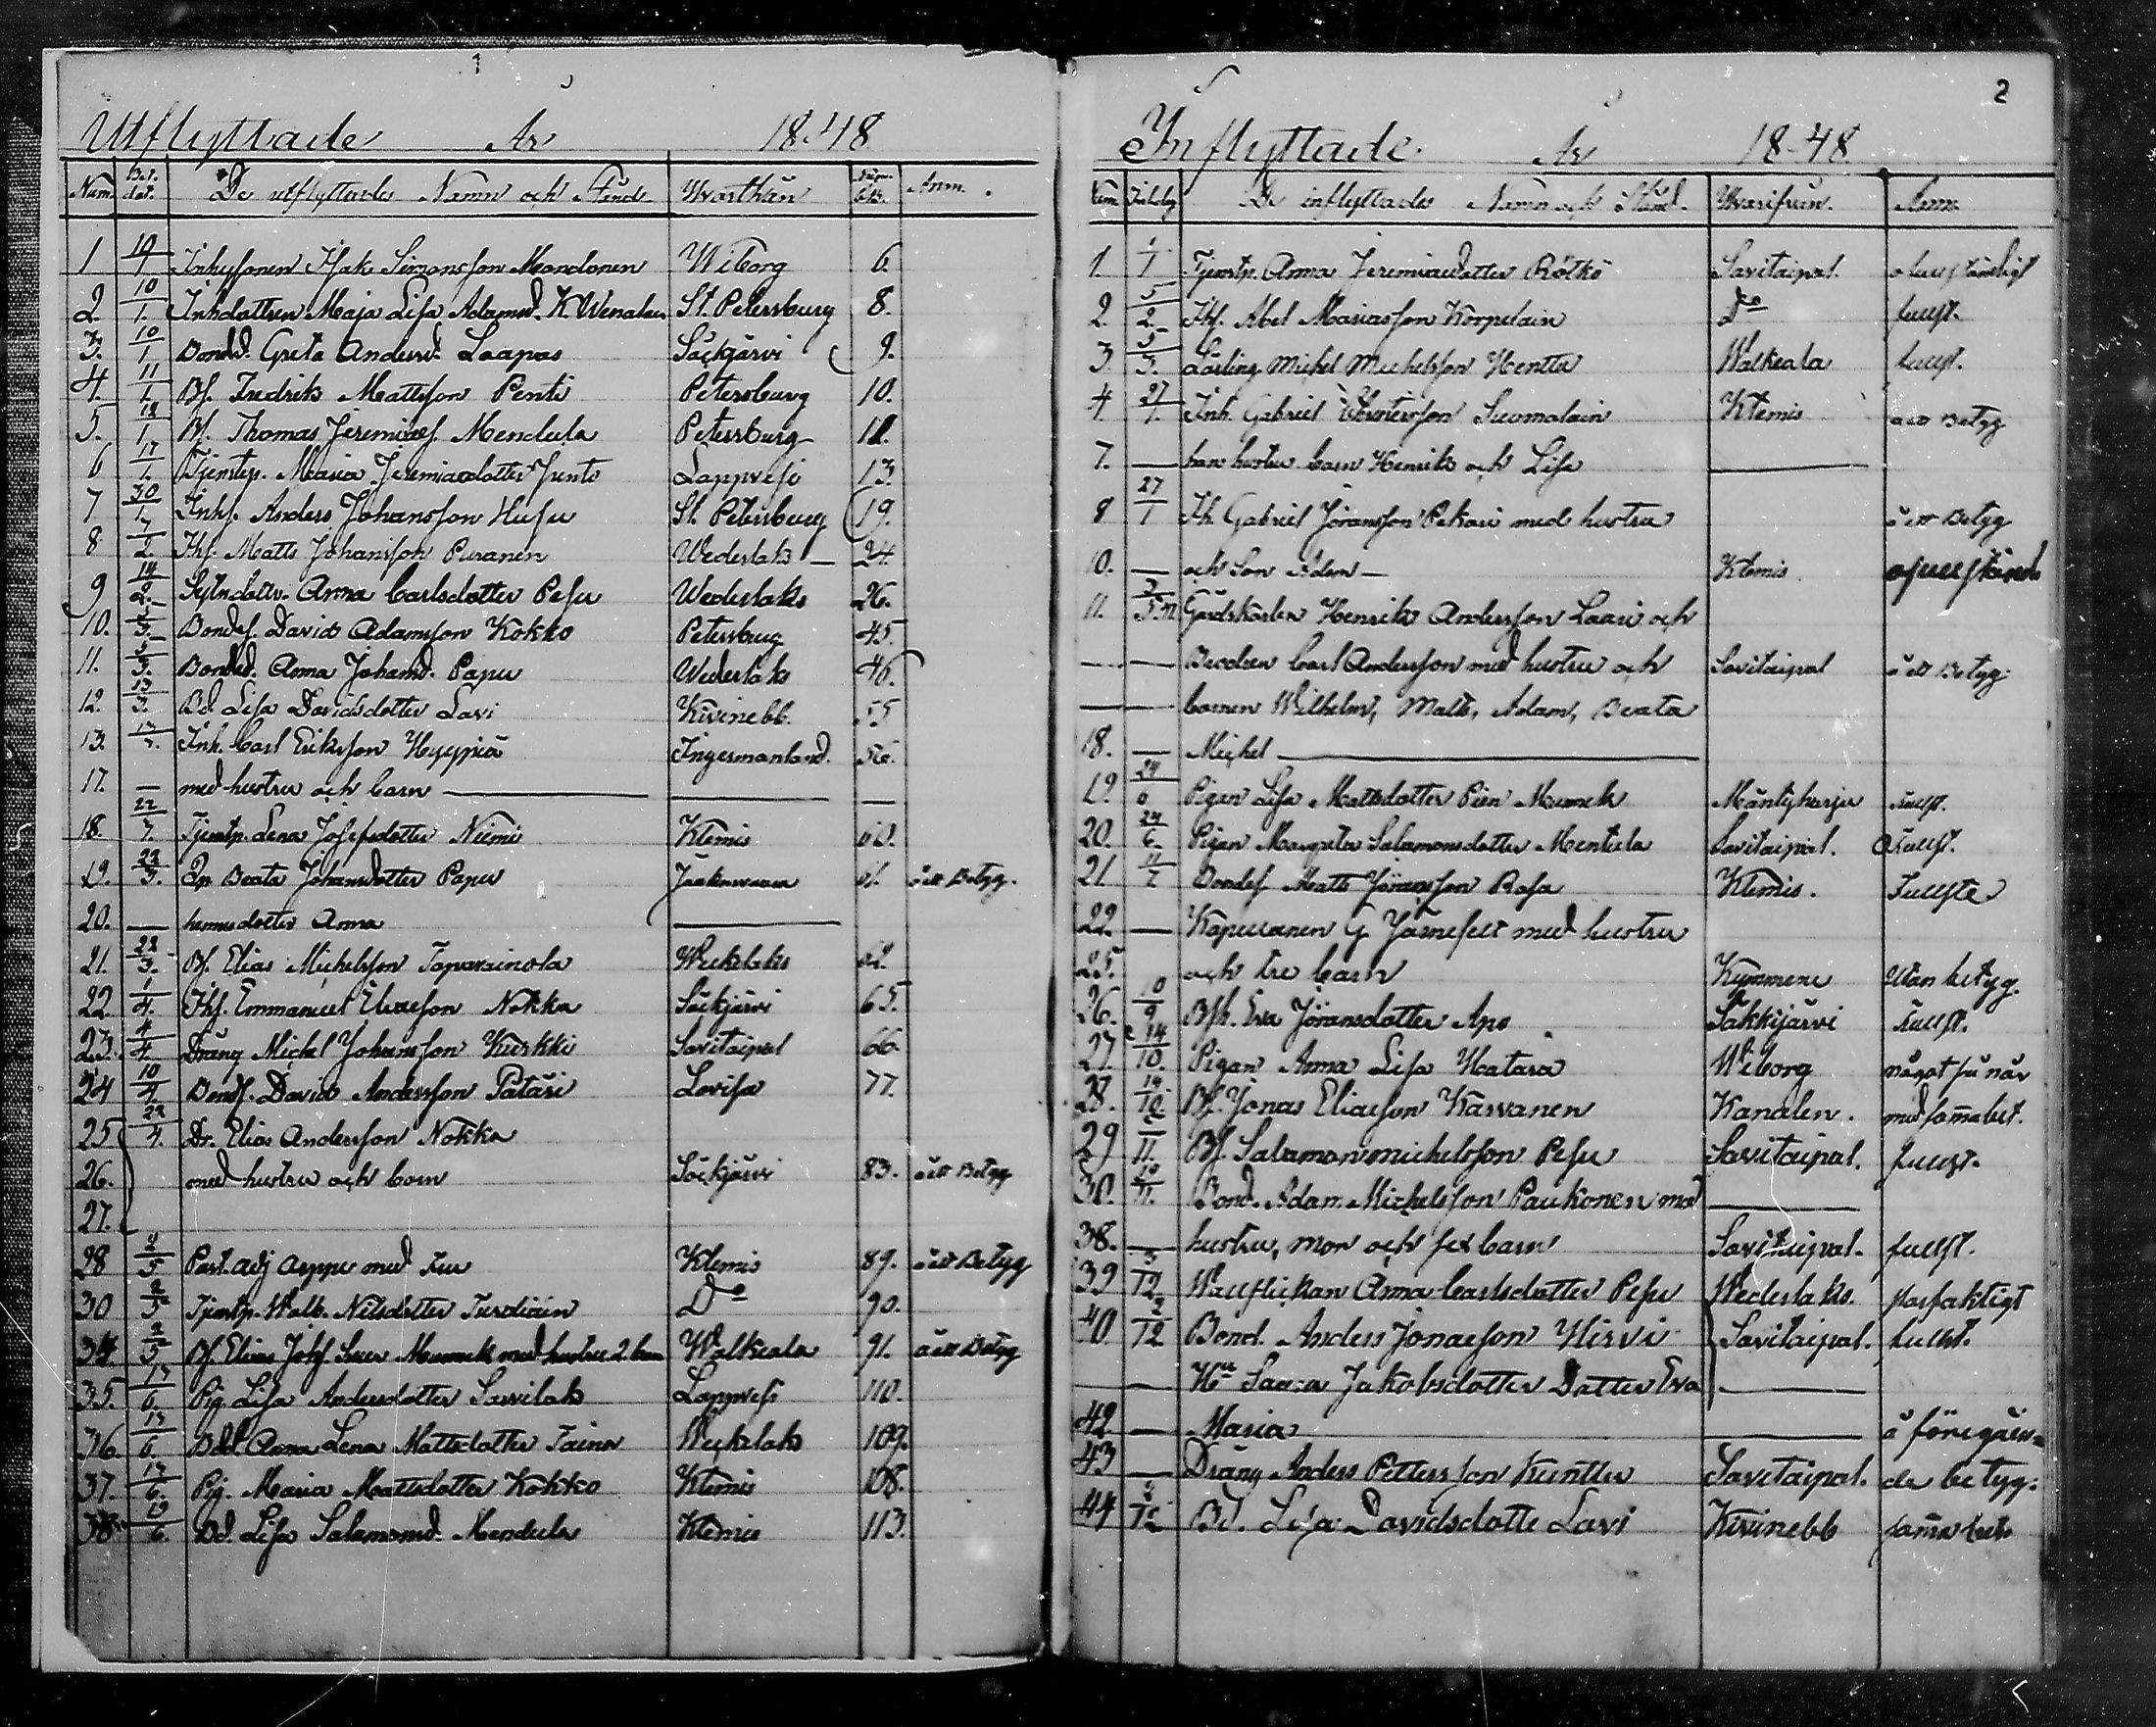 1
Utflyttade År 1848
Num. Bet. dat. De utflyttades Namn och Stånd. Hvarthän Anm.
1 10/1 Inhyssonen Isak Simonsson Mandonen Wiborg 6.
2. 10/1. Inhdottren Maja Lisa Adamsd. K. St. Petersburg 8.
3. 10/1. Bondd. Greta Andersd. Laapas Säckjärvi 9.
4. 11/1. Bs. Fredrik Mattsson Penti Petersburg 10.
5. 12/1. Bs. Thomas Jeremiaes. Mendula Petersburg 12.
6 17/1. Tjenstep. Maria Jeremiaedotter Junto Lappvesi 13.
7 30/1. Inhs. Anders Johansson Husu St. Petersburg 19.
8 7/2. Ths. Matts Johansson Puranen Wederlaks — 24.
9 14/2. Anna Carlsdotter Pesu Wederlaks 26.
10. 5/3. Bondes. David Adamsson Kokko Petersburg 45.
11. 5/3. Bonded. Anna Johansd. Papu Wederlaks 46.
12. 13/3. Bd. Lisa Davidsdotter Lavi Kivinebb. 55
13. Inh. Carl Eriksson Hyyppiä Ingermanland. 56.
17. — med hustru och barn —
18. 22/3. Tjenstp. Lena Josefsdotter Niemi Klemis 60.
19. 22/3. Beata Johansdotter Papu 61. å ett Betyg.
20. — hennes dotter Anna —
21. 22/3. Bs. Elias Michelsson Tapavainola Weckelaks 62.
22. 1/4. Ths. Emmanuel Eliasson Nokka Säckjärvi 65.
23. 4/4. Dräng Michel Johansson Kurkki Savitaipal 66.
24 10/4. Bonds. David Andersson Patäri Lovisa 77.
25. 22/4. Dr. Elias Andersson Nokka
26. med hustru och barn Säckjärvi 83. å ett Betyg
27.
28 2/5 Past. adj Aeppe med Fru Klemis 89. å ett Betyg
30 2/5 Tjenstp. Walb. Nilsdotter Turdiain Do 90.
34 2/5 Bs. Elias Josefs. Suur Mumek med hustru 2. barn Walkeala 91. å ett Betyg
35. 17/6. Pig. Lisa Andersdotter Savilak Lappvesi 110.
36. 17/6. Bdd. Anna Lena Mattsdotter Taina Weckelaks 109.
37. 17/6. Pig. Maria Mattsdotter Kokko Klemis 108.
38. 19/6. Bd. Lisa Salamonsd. Mendula Klemis 113.
2
Inflyttade År 1848
Num. De inflyttades Namn och Stånd. Hvarifrån. Anm.
1. 1/1 Tjenstp. Anna Jeremiaedotter Rötkö Savitaipal. ofullständigt
2. 5/2. Ths. Abel Mariasson Korpelain Do fullst.
3. 5/3. Lärling Michel Michelsson Hentta Walkeala fullst.
4 27/1. Inh. Gabriel Suomalain Klemis å ett Betyg
7. — hans hustru barn Henrik och Lisa —
8 27/1 Th. Gabriel Jöransson Pekari med hustru å ett Betyg
10. — och Son Adam — Klemis ofullständ
11. Gårdskarlen Henrik Andersson Laari och
— — Brodren Carl Andersson med hustru och Savitaipal å ett Betyg
— — barnen Wilhelm, Matts, Adam, Beata
18. — Michel —
19. 24/6 Pigan Lisa Mattsdotter Pien Mumek Mäntyharju fullst.
20. 24/6. Pigan Margreta Salamonsdotter Mentula Savitaipal. fullst.
21. 11/7. Bondes. Matts Jöransson Rasa Klemis. Fullste
22. — Kapellanen G. Järnefelt med hustru
25. och tre barn Kymmene Utan betyg.
26. 10/9. Eva Jöransdotter Apo Säkkijärvi fullst.
27. 14/10. Pigan Anna Lisa Hatara Wiborg något så när
28. 14/10. Bs. Jonas Eliasson Karvanen Kanalen. med samma bet.
29 /11. Bs. Salamon Michelsson Pesu Savitaipal. fullst.
30. /11. Bond. Adam Michelsson Paukonen med —
38. — hustru, mor och sex barn Savitaipal. fullst.
39 3/12 Anna Carlsdotter Pesu Wederlaks.
40. 2/12 Bond. Anders Jonaesson Hirvi Savitaipal. fullst.
— Jakobsdotter Dotter Eva —
42 — Maria — å föregåen=
43 — Dräng Anders Pettersson Kunttu Savitaipal. de betyg.
44 /12 Bd. Lisa Davidsdotte Lavi Kivinebb